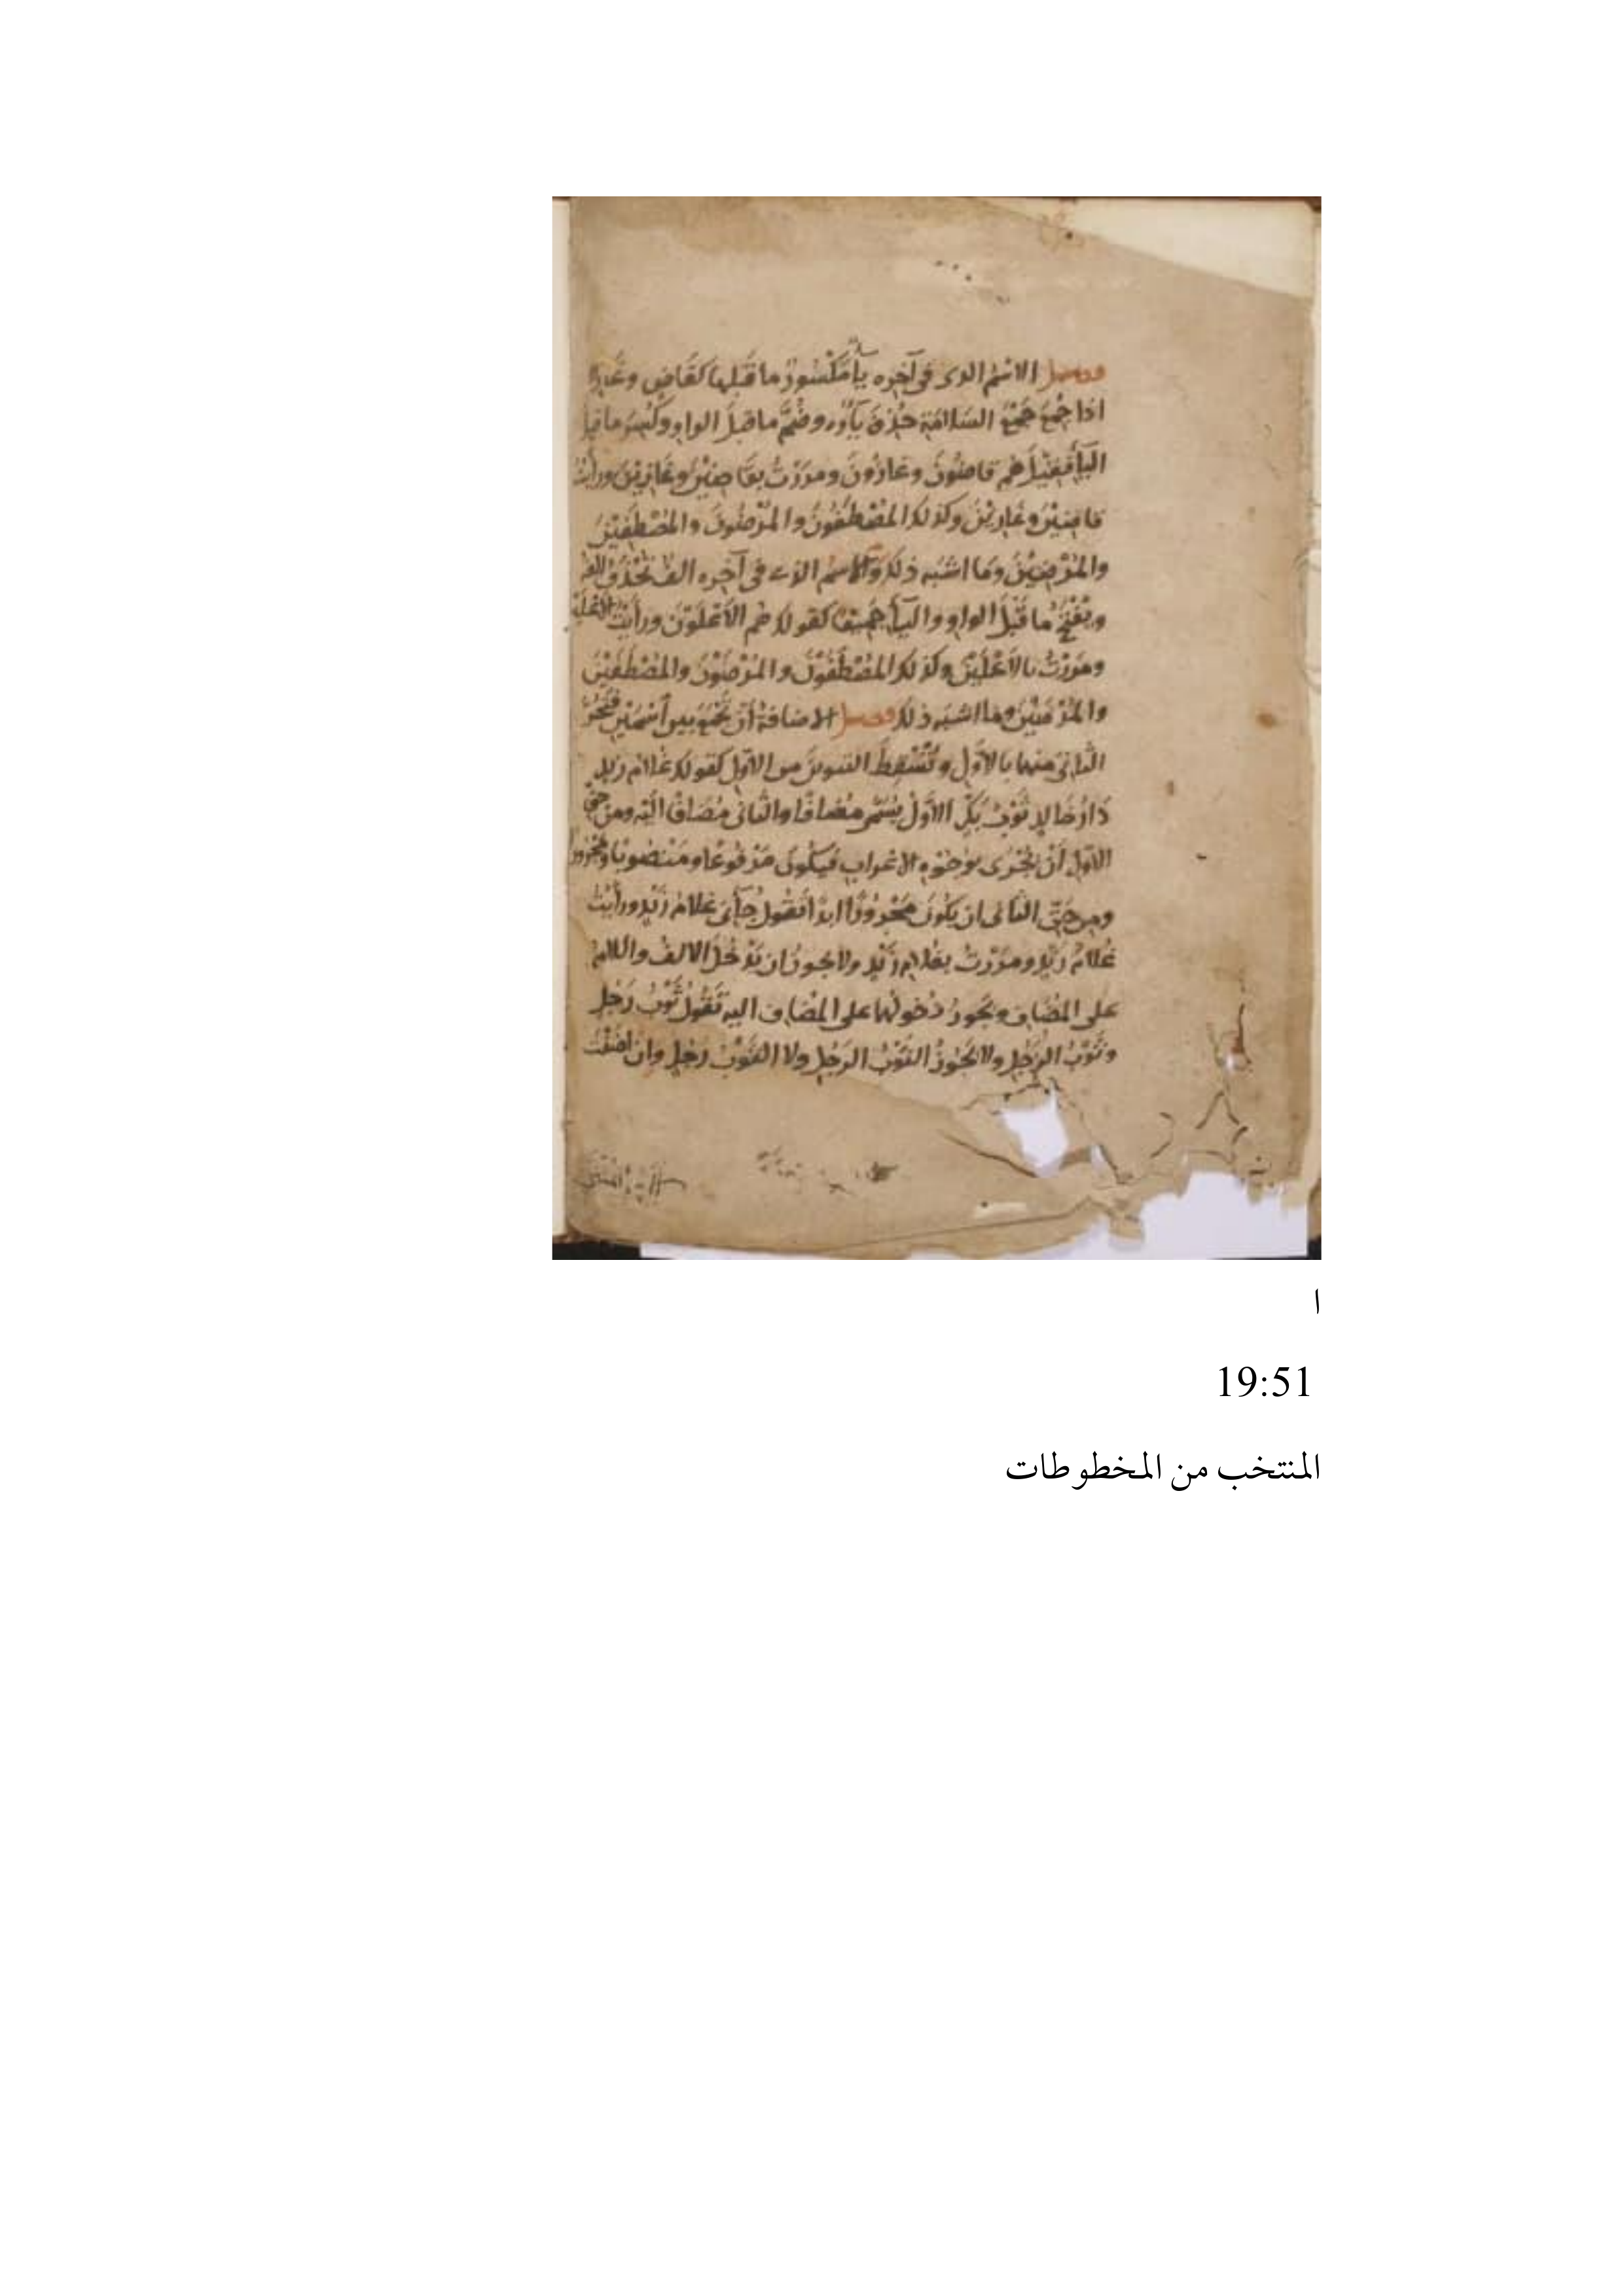 فصل الاسْمُ الذى فى آخِره يآءٌ مَكْسُورٌ ما قَبلها كقَاضٍ وغَازٍ
اذا جُمِعَ جَمْعَ السَلامَةِ حُذِفَ يآؤه وضُمَّ ما قبلَ الواو وكُسِرَ ما قبل
اليآءِ فقيلَ هُم قاضُونَ وغازُونَ ومرَرْتُ بقَاضِيْنَ وغَازِيْنَ ورأيْتُ
قاضِيْنَ وغَازِيْنَ وكذلك المُصْطَفُونَ والمُرْضُونَ والمُصْطَفِيْنَ
والمُرْضِيْنَ ومَا اشْبَه ذلك والاسمُ الذى فى آخِره الف تُحْذَفُ الِفُه
ويُفْتَحُ ما قَبْلَ الواوِ واليآءِ جَميعًا كقولك هُم الأعْلَوْنَ ورأيْتُ الأعْلَيْنَ
ومَرَرْتُ بالأعْلَيْنَ وكذلك المُصْطَفَوْنَ والمُرْضَوْنَ والمُصْطَفَيْنَ
والمُرْضَيْنَ وما اشْبَهَ ذلك فصل الاضافةُ أنْ تَجْمَعَ بين أسْمَيْنِ فتَجُرَّ
الثانىَ منهما بالأوَّلِ وتُسْقِطَ التنوينَ من الأوّلِ كقولك غلامُ زيدٍ
دَارُ خَالدٍ ثَوْبُ بَكْرٍ الأوّلُ يُسَمَّى مُضافًا والثانى مُضَافًا الَيْه ومن حَقِّ
الأوّلِ أنْ يَجْرِى بوُجُوْهِ الاعْرابِ فيكُونَ مَرْفُوعًا ومَنْصُوبًا ومَجْرُورًا
ومِن حَقِّ الثانى ان يكُونَ مَجْرُورًا ابدًا تقُولُ جآءَنى غلامُ زَيْدٍ ورأيْتُ
غُلامَ زَيْدٍ ومرَرْتُ بغُلامِ زَيْدٍ ولا يجوزُ ان تَدْخُلَ الالفُ واللامُ
على المُضَافِ ويَجُوزُ دُخولُهما على المُضَافِ اليه تَقُولُ ثَوْبُ رَجُلٍ
وثَوْبُ الرَجُلِ ولا يَجُوزُ الثَوْبُ الرَجُلِ ولا الثَوْبُ رَجُلٍ وان اضَفْتَ
ا
19:51
المنتخب من المخطوطات